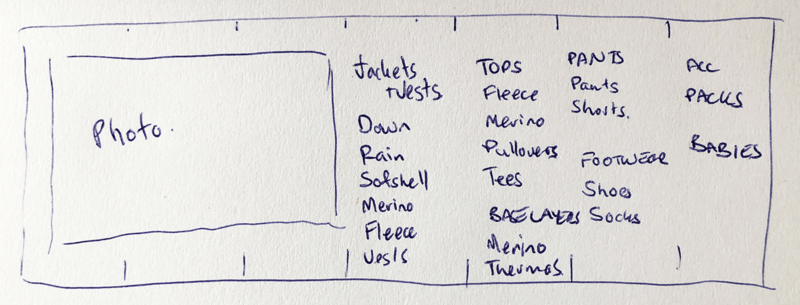 Photo.
Jackets
+Vests
Down
Rain
Softshell
Merino
Fleece
Vests
TOPS
Fleece
Merino
Pullovers
Tees
BASELAYERS
Merino
Thermas
PANTS
Pants
Shorts.
FOOTWEAR
Shoes
Socks
ACC
PACKS
BABIES